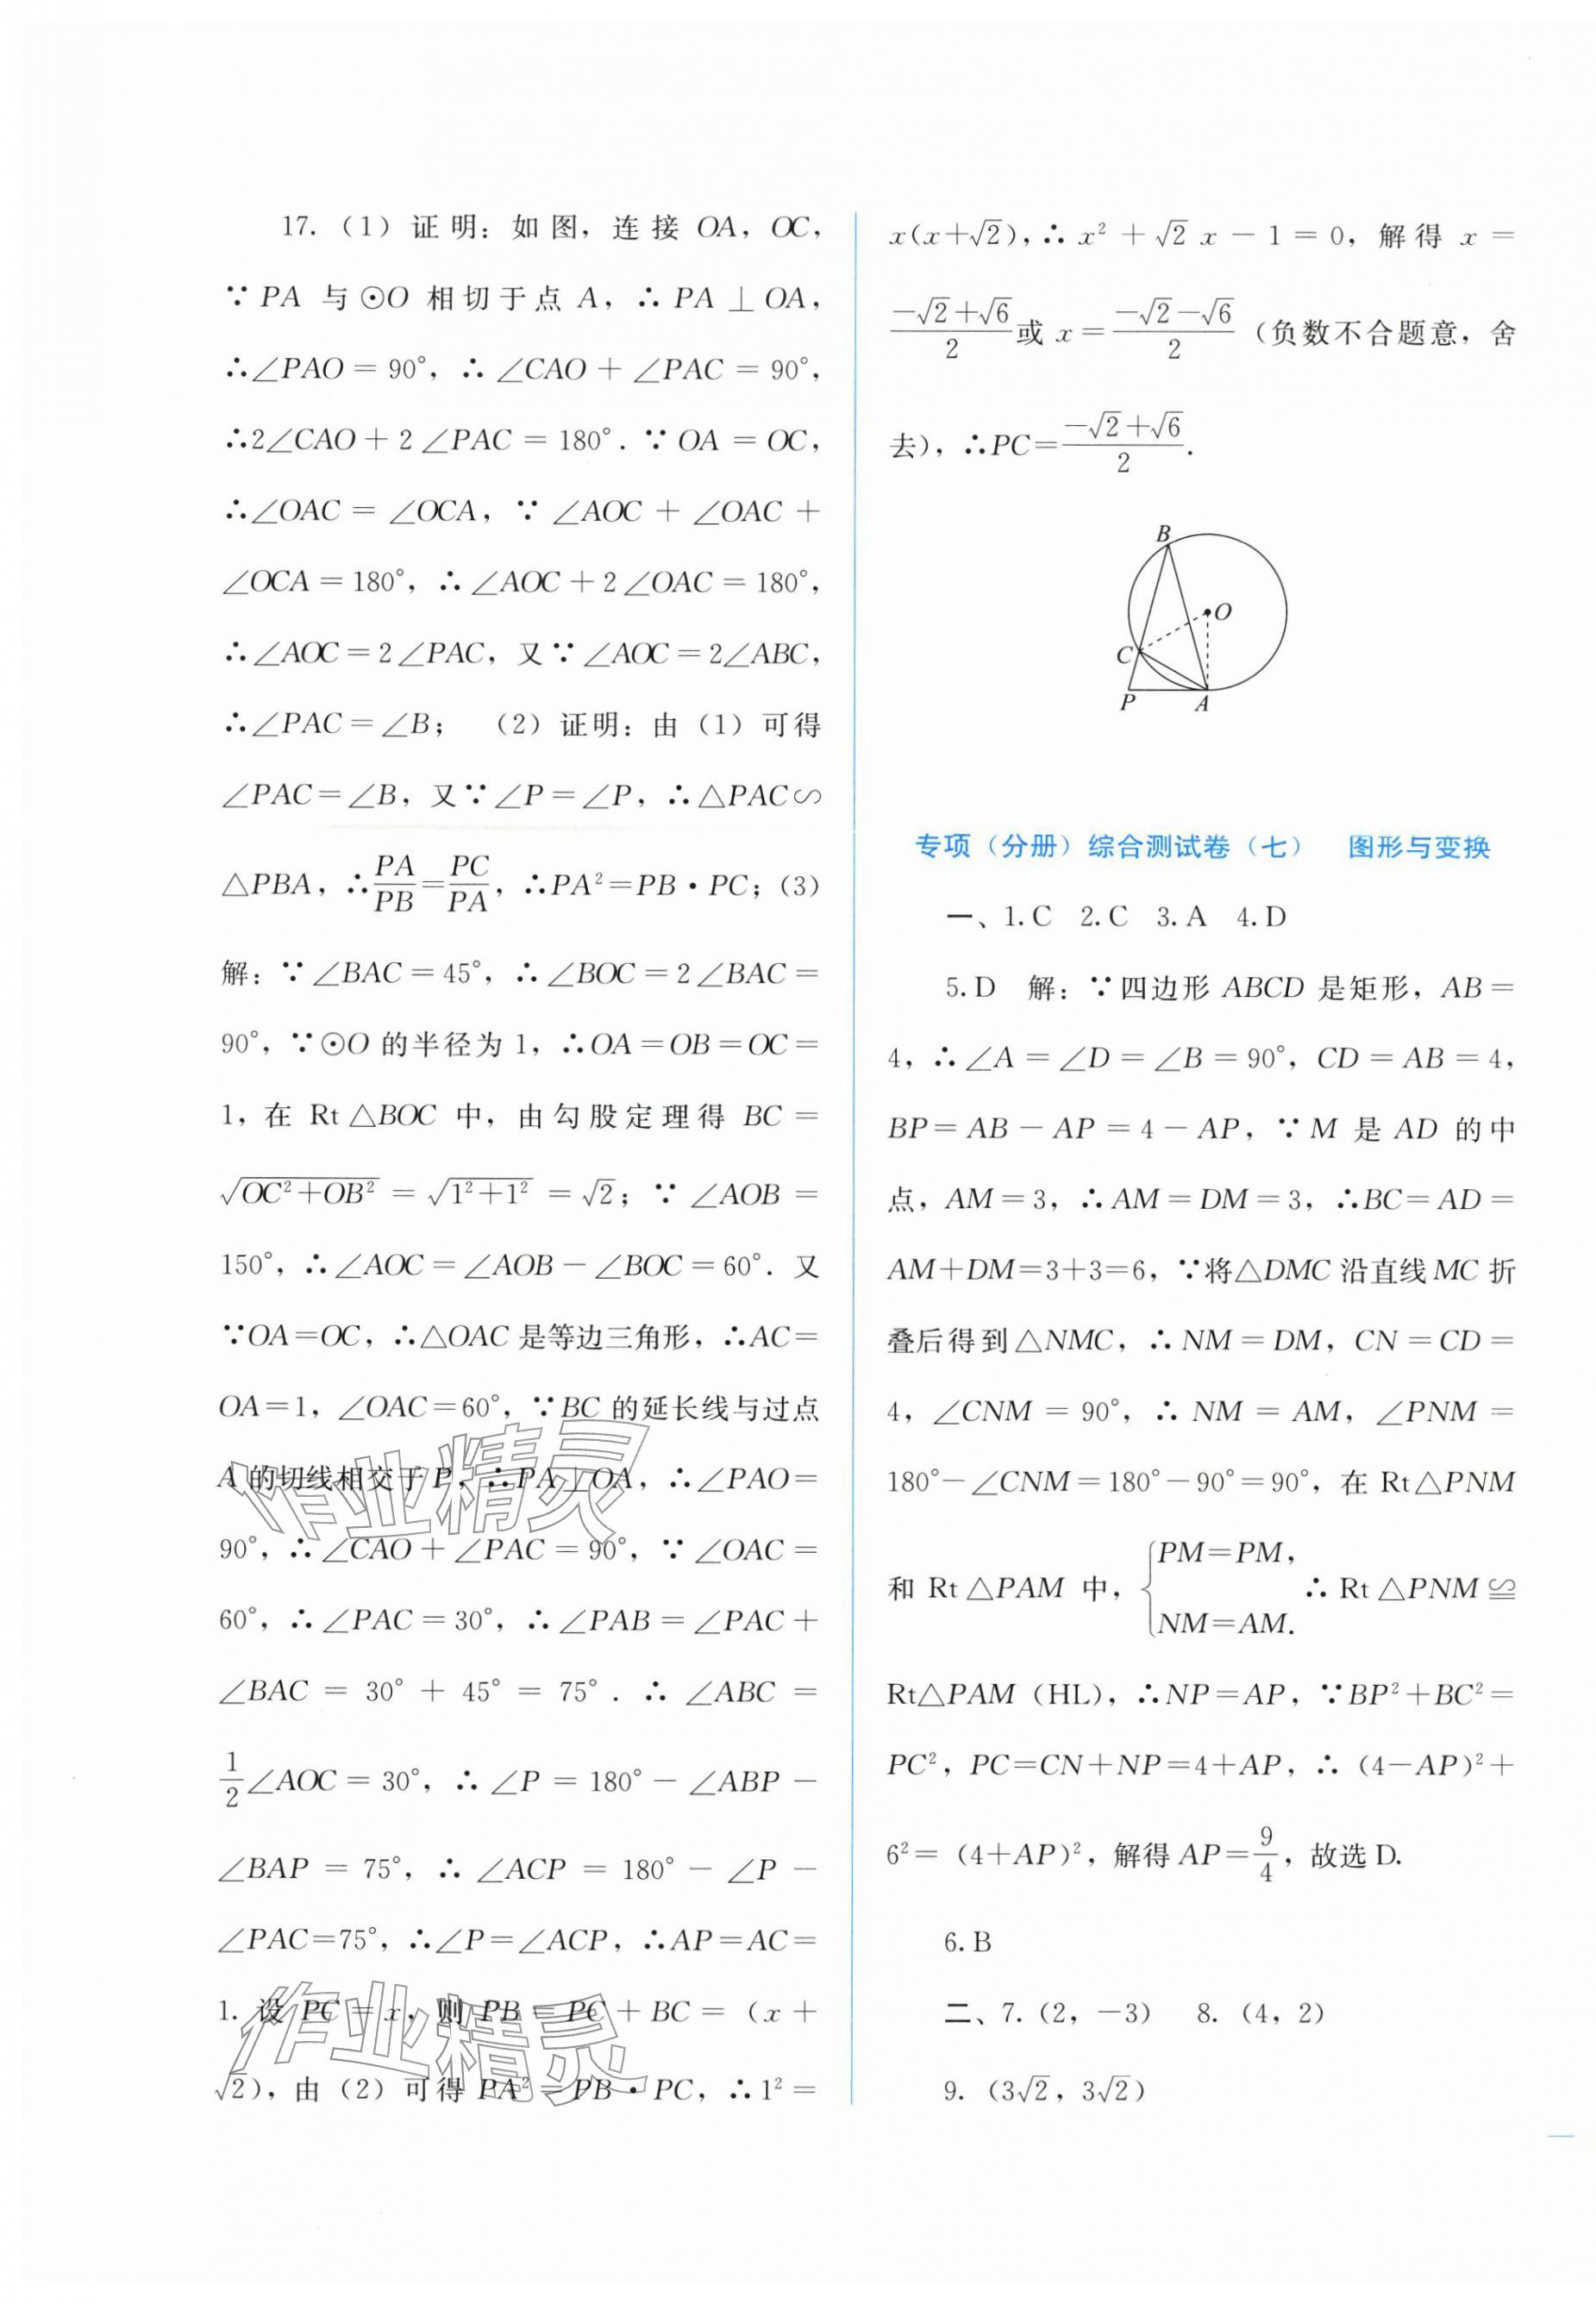 17.（1）证明：如图，连接 OA，OC，
∵PA 与⊙O 相切于点 A，∴PA⊥OA，
∴∠PAO＝90°，∴∠CAO＋∠PAC＝90°，
∴2∠CAO＋2∠PAC＝180°.∵OA＝OC，
∴∠OAC＝∠OCA，∵∠AOC＋∠OAC＋
∠OCA＝180°，∴∠AOC＋2∠OAC＝180°，
∴∠AOC＝2∠PAC，又∵∠AOC＝2∠ABC，
∴∠PAC＝∠B；（2）证明：由（1）可得
∠PAC＝∠B，又∵∠P＝∠P，∴△PAC∽
△PBA，∴PA/PB＝PC/PA，∴PA²＝PB·PC；（3）
解：∵∠BAC＝45°，∴∠BOC＝2∠BAC＝
90°，∵⊙O 的半径为 1，∴OA＝OB＝OC＝
1，在 Rt△BOC 中，由勾股定理得 BC＝
√(OC²＋OB²)＝√(1²＋1²)＝√2；∵∠AOB＝
150°，∴∠AOC＝∠AOB－∠BOC＝60°. 又
∵OA＝OC，∴△OAC 是等边三角形，∴AC＝
OA＝1，∠OAC＝60°，∵BC 的延长线与过点
A 的切线相交于 P，∴PA⊥OA，∴∠PAO＝
90°，∴∠CAO＋∠PAC＝90°，∵∠OAC＝
60°，∴∠PAC＝30°，∴∠PAB＝∠PAC＋
∠BAC＝30°＋45°＝75°.∴∠ABC＝
1/2∠AOC＝30°，∴∠P＝180°－∠ABP－
∠BAP＝75°，∴∠ACP＝180°－∠P－
∠PAC＝75°，∴∠P＝∠ACP，∴AP＝AC＝
1. 设 PC＝x，则 PB＝PC＋BC＝（x＋
√2），由（2）可得 PA²＝PB·PC，∴1²＝
作业精灵
作业精灵
x(x＋√2)，∴x²＋√2x－1＝0，解得 x＝
(－√2＋√6)/2 或 x＝(－√2－√6)/2（负数不合题意，舍
去），∴PC＝(－√2＋√6)/2.
B
O
C
P A
专项（分册）综合测试卷（七） 图形与变换
一、1.C 2.C 3.A 4.D
5.D 解：∵四边形 ABCD 是矩形，AB＝
4，∴∠A＝∠D＝∠B＝90°，CD＝AB＝4，
BP＝AB－AP＝4－AP，∵M 是 AD 的中
点，AM＝3，∴AM＝DM＝3，∴BC＝AD＝
AM＋DM＝3＋3＝6，∵将△DMC 沿直线 MC 折
叠后得到△NMC，∴NM＝DM，CN＝CD＝
4，∠CNM＝90°，∴NM＝AM，∠PNM＝
180°－∠CNM＝180°－90°＝90°，在 Rt△PNM
和 Rt△PAM 中，{PM＝PM，NM＝AM. ∴Rt△PNM≌
Rt△PAM（HL），∴NP＝AP，∵BP²＋BC²＝
PC²，PC＝CN＋NP＝4＋AP，∴（4－AP)²＋
6²＝（4＋AP)²，解得 AP＝9/4，故选 D.
6.B
二、7.（2，－3） 8.（4，2）
9.（3√2，3√2）